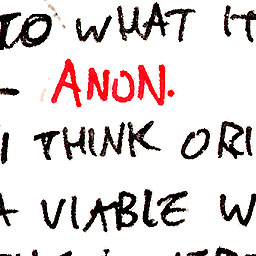 TO WHAT IT
- ANON.
I THINK ORI
A VIABLE W